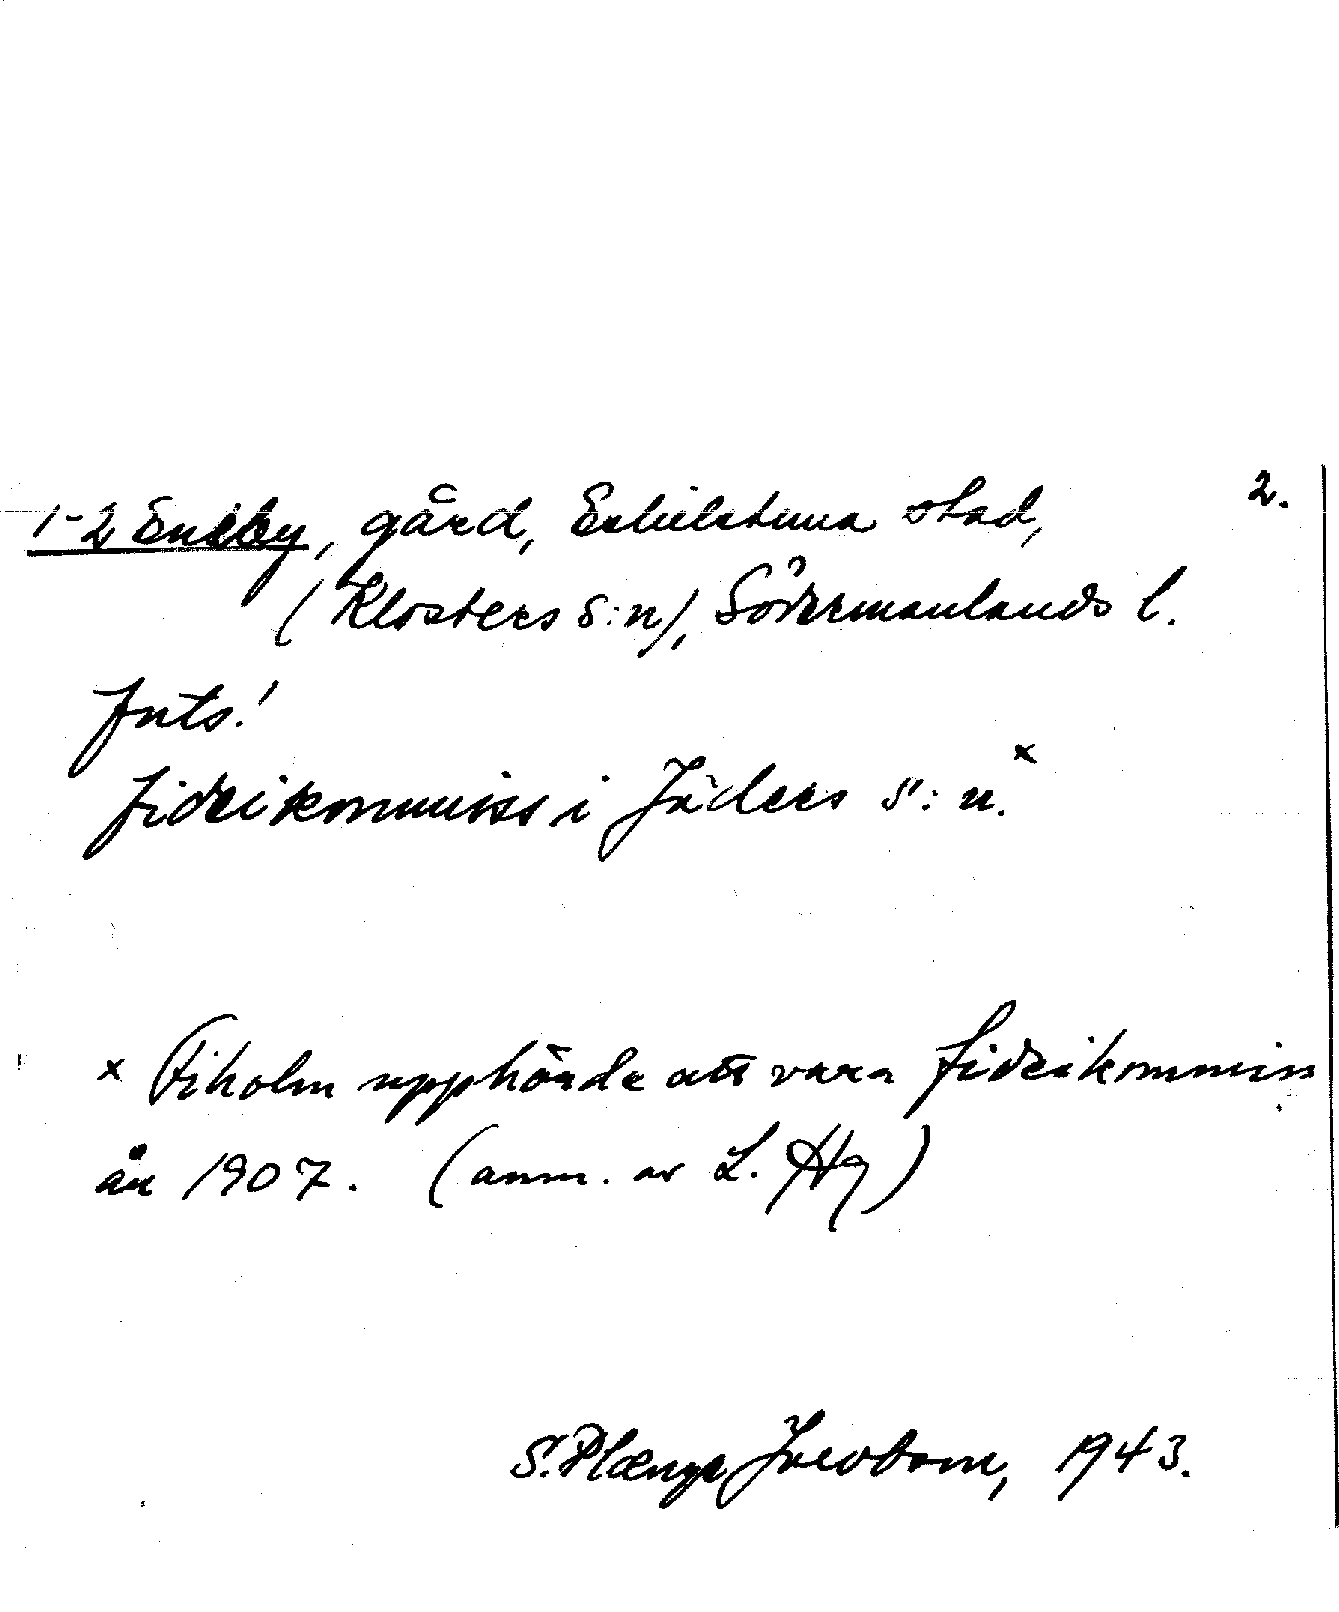 2.
1-2 Eneby, gård, Eskilstuna stad,
(Klosters s:n), Södermanlands l.
Forts.!
fideikommiss i Jäders s:n.x
x Fiholm upphörde att vara fideikommiss
år 1907. (anm. av L. Hg)
S. Plænge Jacobson, 1943.